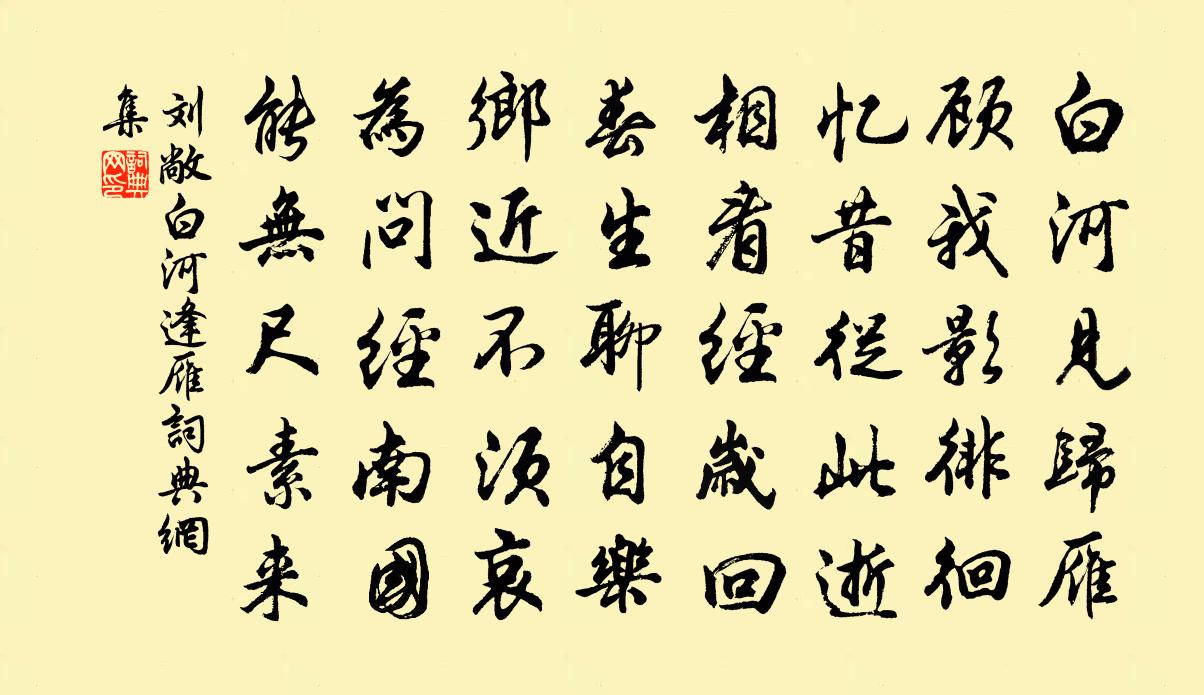 白河見歸雁
顾我影徘徊
忆昔從此逝
相看經歲回
春生聊自樂
鄉近不須哀
為問經南國
能無尺素来
刘敞白河逢雁詞典網
集
詞典網印